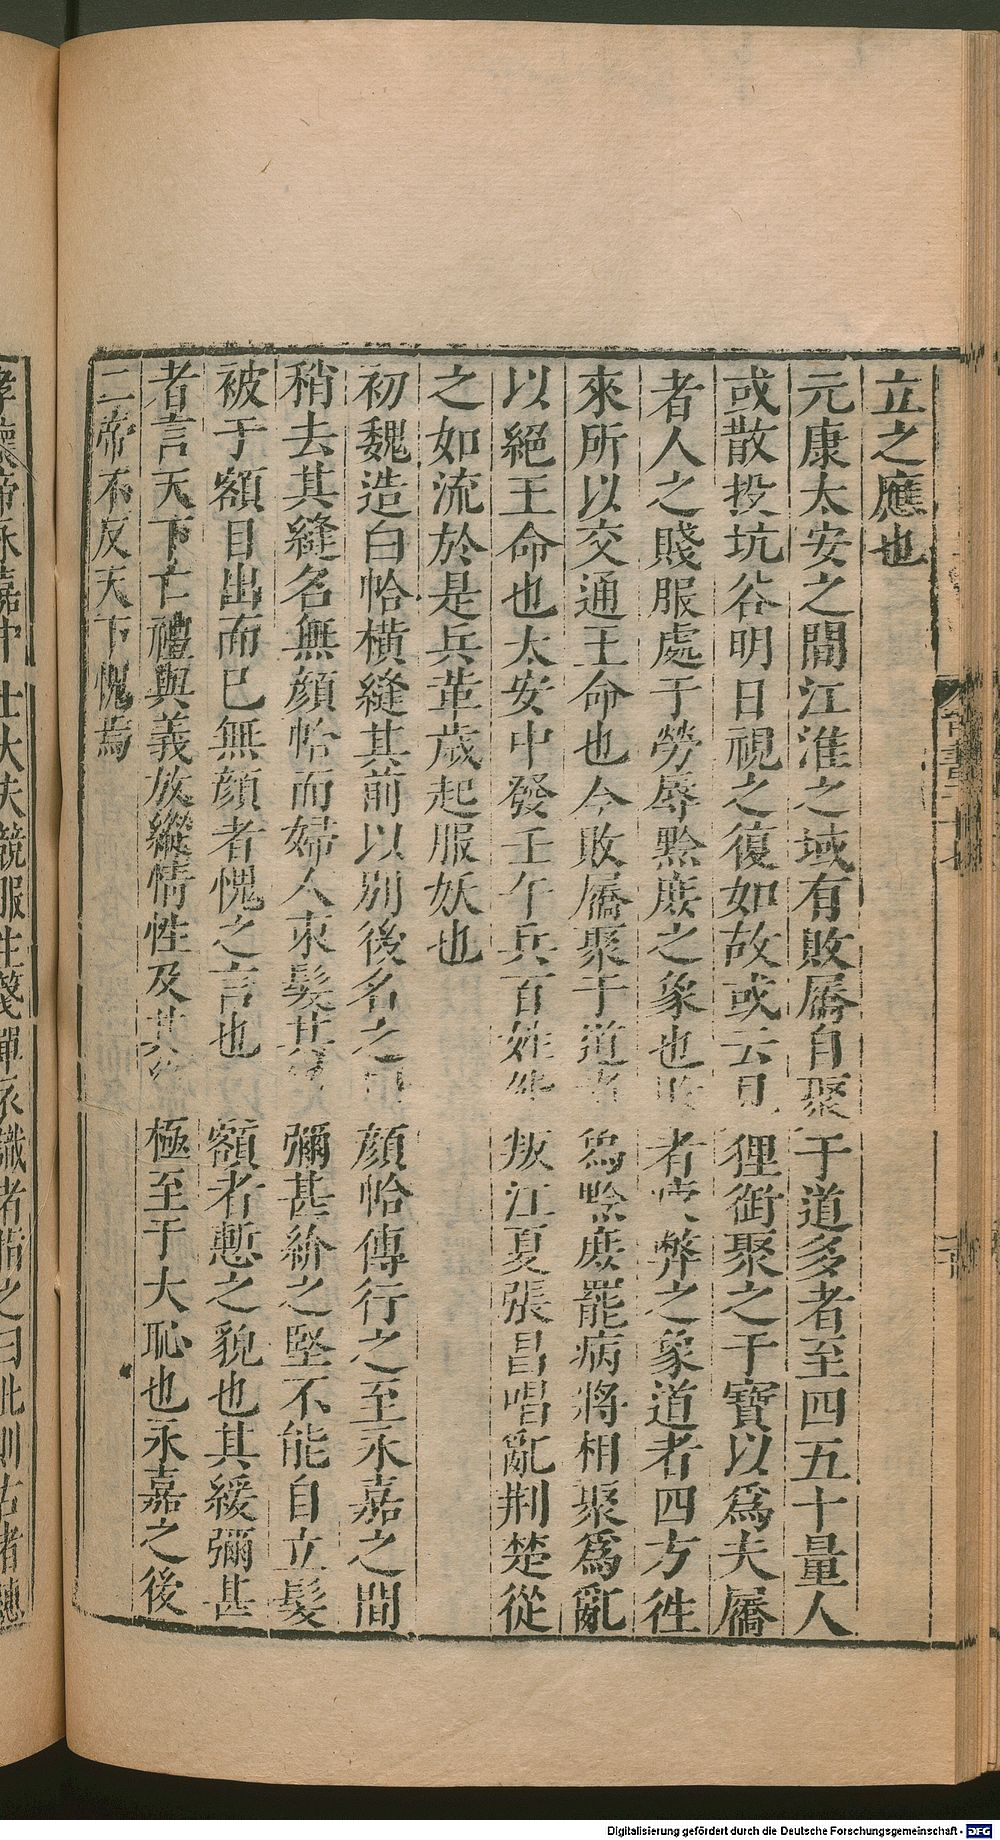 立之應也
元康太安之間江淮之域有敗屩自聚于道多者至四五十量人
或散投坑谷明日視之復如故或云見狸銜聚之干寶以爲夫屩
者人之賤服處于勞辱黔庶之象也敗者疲弊之象道者四方徃
來所以交通王命也今敗屩聚于道者爲黔庶罷病將相聚爲亂
以絕王命也太安中發壬午兵百姓怨叛江夏張昌唱亂荆楚從
之如流於是兵革歲起服妖也
初魏造白帢橫縫其前以別後名之曰顏帢傳行之至永嘉之間
稍去其縫名無顏帢而婦人束髮其緩彌甚紒之堅不能自立髮
被于額目出而已無顏者愧之言也額者慙之貌也其緩彌甚
者言天下亡禮與義放縱情性及其終極至于大恥也永嘉之後
二帝不反天下愧焉
孝懷帝永嘉中士大夫競服生箋單衣識者指之曰此則古者繐
Digitalisierung gefördert durch die Deutsche Forschungsgemeinschaft - DFG